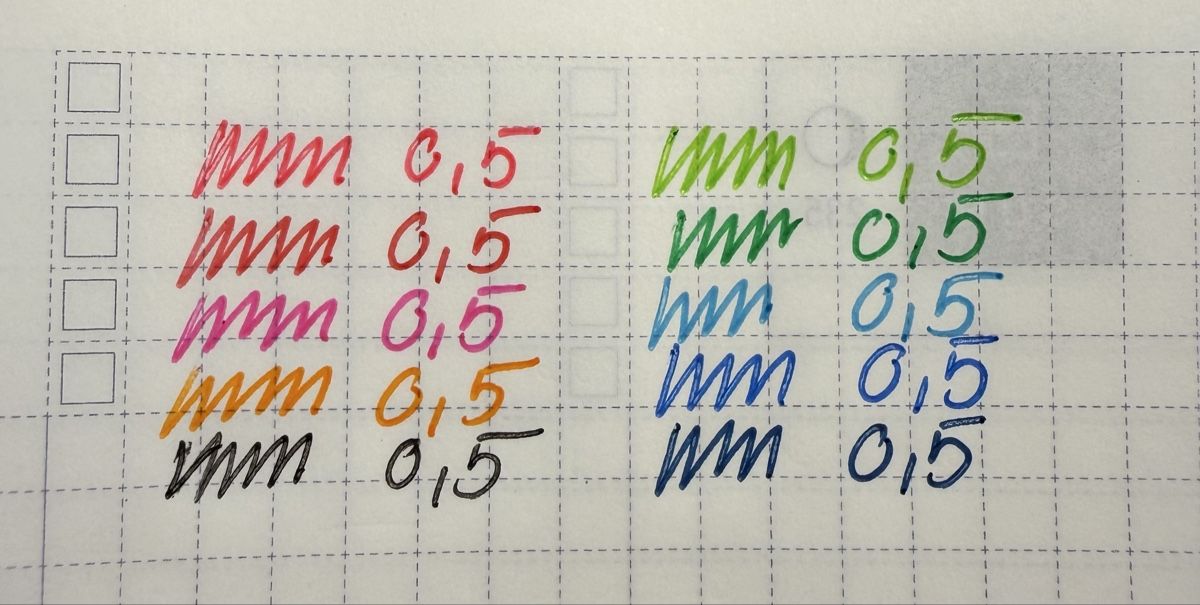 0,5
0,5
0,5
0,5
0,5
0,5
0,5
0,5
0,5
0,5